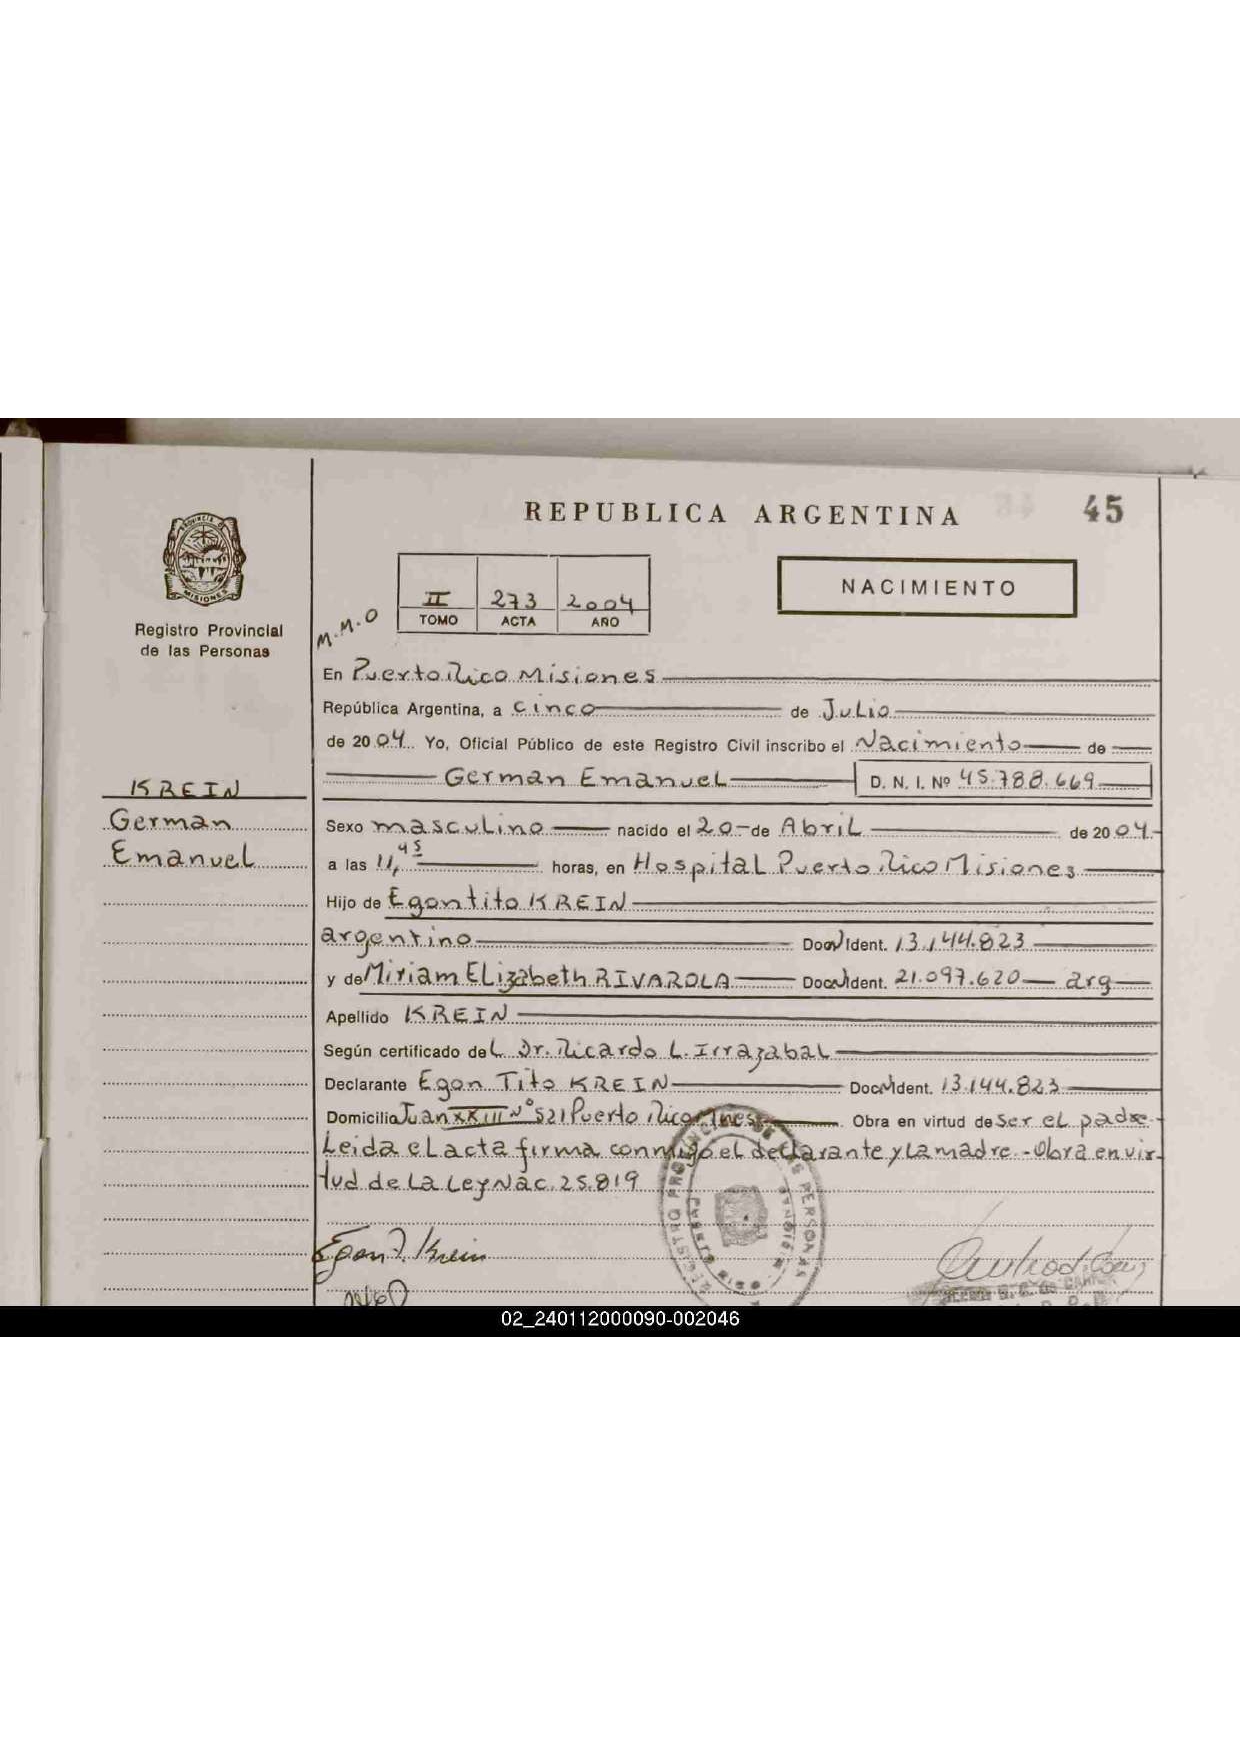 REPUBLICA ARGENTINA
45
PROVINCIA DE
MISIONES
Registro Provincial
de las Personas
II 273 2004
TOMO ACTA AÑO
NACIMIENTO
M.M.O
En Puerto Rico Misiones
República Argentina, a cinco de Julio
de 2004. Yo, Oficial Público de este Registro Civil inscribo el Nacimiento de
German Emanuel D. N. I. Nº 45.788.669
KREIN
German
Emanuel
Sexo masculino nacido el 20 de Abril de 2004
a las 11,45 horas, en Hospital Puerto Rico Misiones
Hijo de Egon tito KREIN
argentino Doc Ident. 13.144.823
y de Miriam Elizabeth RIVAROLA Doc Ident. 21.097.620 arg
Apellido KREIN
Según certificado del Dr. Ricardo L. Irrazabal
Declarante Egon Tito KREIN Doc Ident. 13.144.823
Domicilia Juan XXIII Nº 521 Puerto Rico Mnes Obra en virtud de ser el padre
Leida el acta firma conmigo el declarante y la madre.- Obra en vir-
tud de la Ley Nac. 25.819
REGISTRO PROVINCIAL DE LAS PERSONAS
Egon T. Krein
02_240112000090-002046